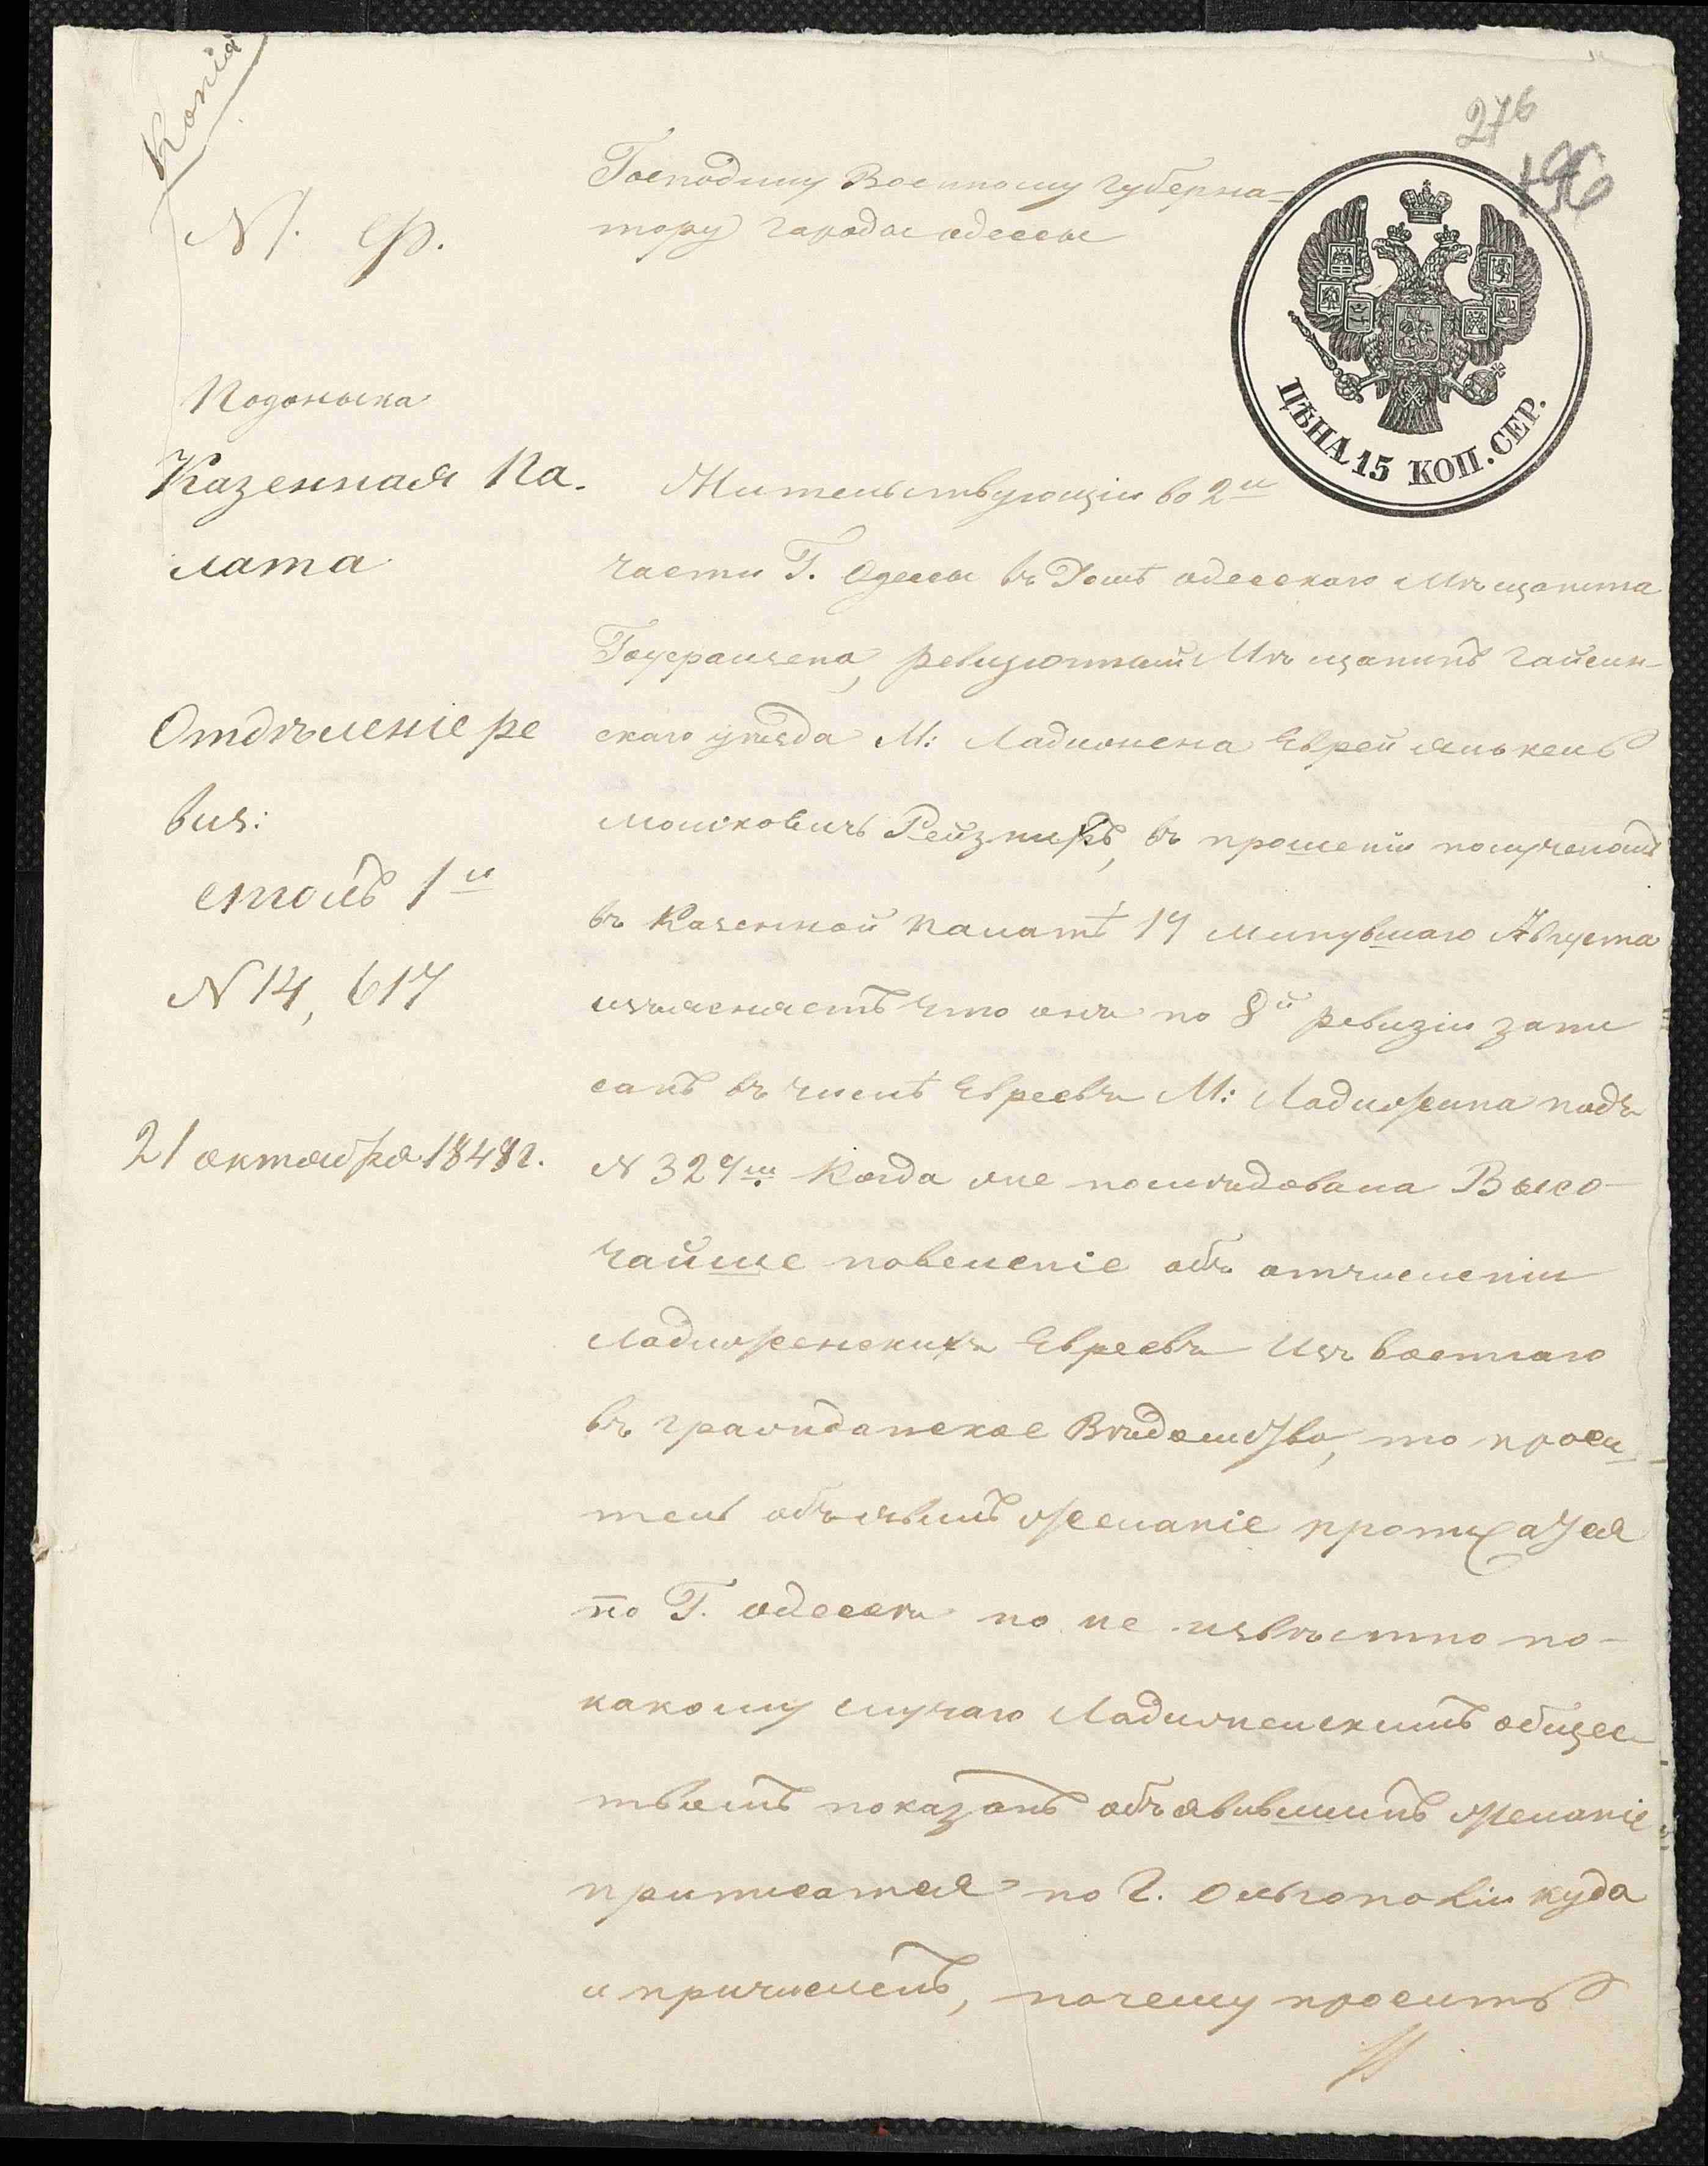 Копія
276
196
М. Ф.
Господину Военному Губерна-
тору города одессы
ЦѢНА 15 КОП. СЕР.
Подольска
Казенная Па.
лата
Отдѣленіе ре
виз:
столъ 1й
N 14, 617
21 октября 1848 г.
Жительствующій во 2й
части Г. Одессы въ Домѣ одесского Мѣщанина
ревизскій Мѣщанинъ гайсин-
скаго уѣзда М: Ладыжена Еврей Янькель
Мошковичъ Рейзниръ, въ прошеніи полученомъ
въ Казенной Палатѣ 17 минувшаго Августа
изъясняетъ что онъ по 8й ревизіи запи
санъ въ числѣ Евреевъ М: Ладыжина подъ
N 329м. Когда же послѣдовала Высо-
чайше повеленіе объ отчисленіи
Ладыженскихъ Евреевъ Изъ военнаго
въ гражданское Вѣдомство, то проси-
тель объявилъ желаніе приписатся
по Г. одессѣ но не извѣстно по-
какому случаю Ладыженскимъ общес
твомъ показанъ объявившимъ желаніе
приписатся по Г. Ольгополю куда
и причисленъ, почему проситъ